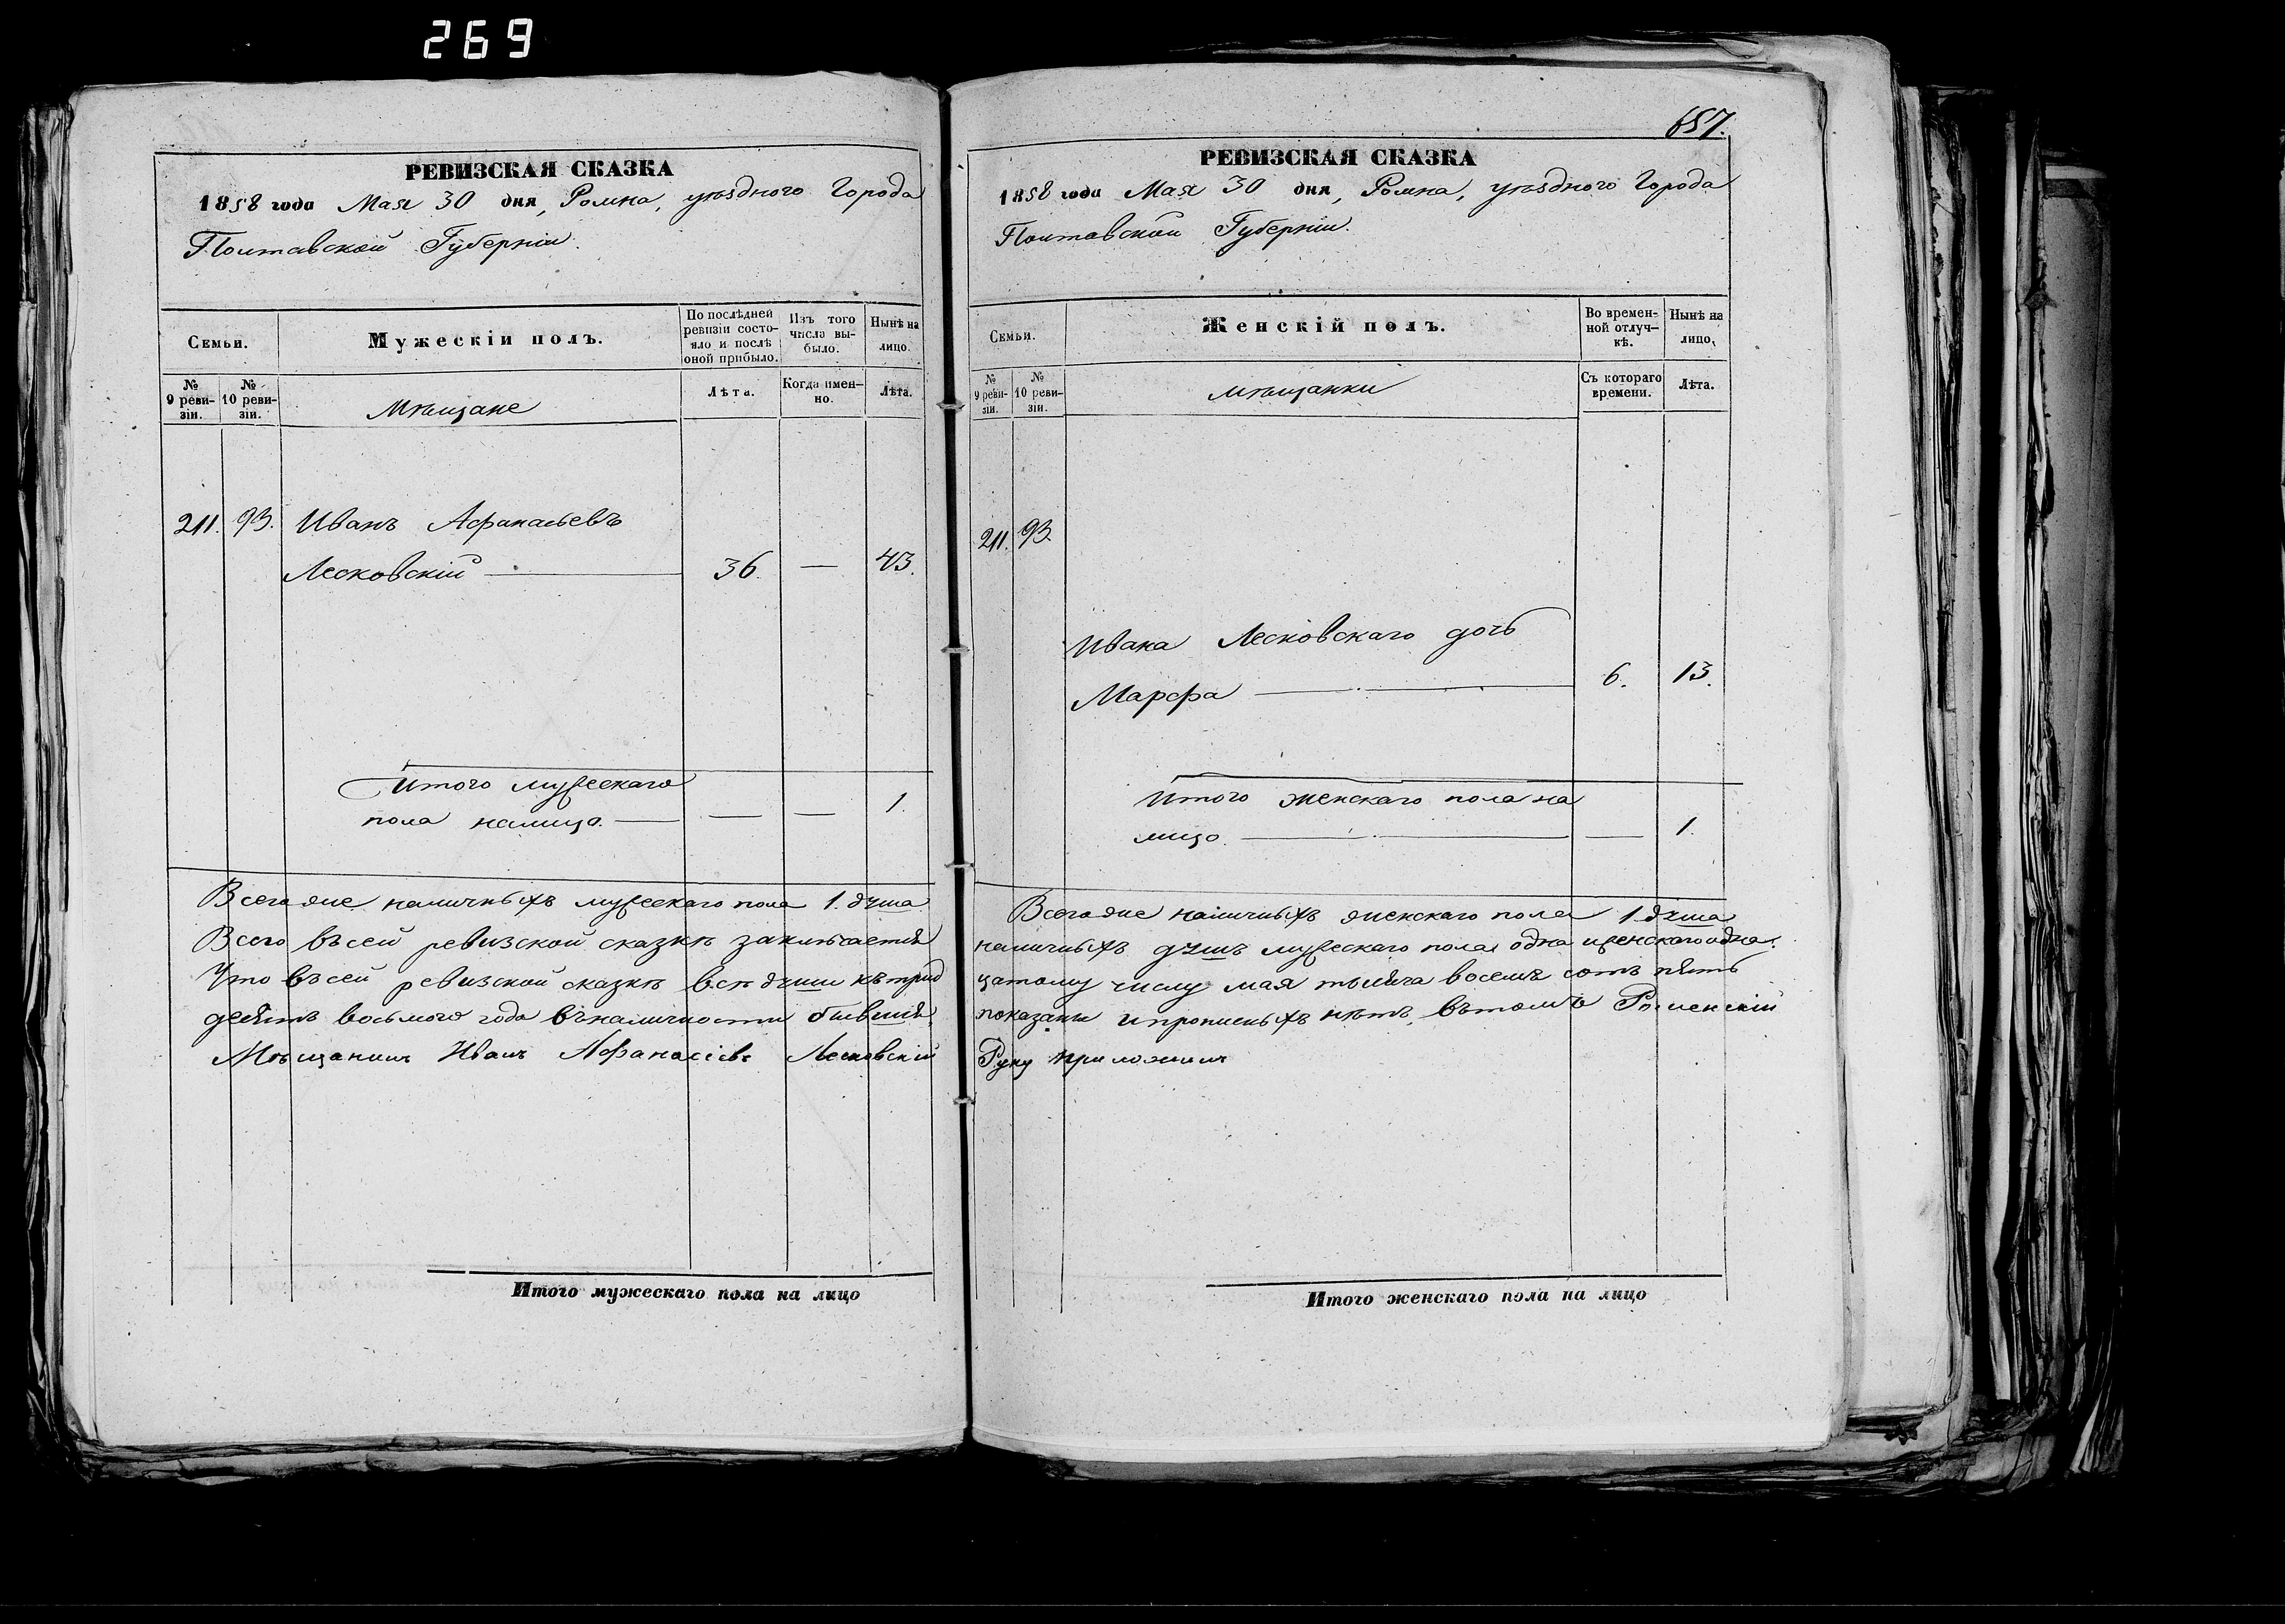 269
РЕВИЗСКАЯ СКАЗКА
1858 года Мая 30 дня, Ромна, уѣзднаго Города
Полтавской Губерніи.
Семьи.
Мужескій полъ.
По послѣдней ревизіи состояло и послѣ оной прибыло.
Изъ того числа выбыло.
Нынѣ на лицо.
№ 9 ревизіи.
№ 10 ревизіи.
Мѣщане
Лѣта.
Когда именно.
Лѣта.
211. 93. Иванъ Афанасьевъ
Лесковскій — 36. — 43.
Итого мужескаго
пола налицо. — — — 1.
Всего же наличныхъ мужескаго пола 1. душа
Всего въ сей ревизской сказкѣ заключается
Что въ сей ревизской сказкѣ всѣ души къ трид
десять восьмого года въ наличности бывшія,
Мѣщанинъ Иванъ Афанасіевъ Лесковскій
Итого мужескаго пола на лицо
657.
РЕВИЗСКАЯ СКАЗКА
1858 года Мая 30 дня, Ромна, уѣзднаго Города
Полтавской Губерніи.
Семьи.
Женскій полъ.
Во временной отлучкѣ.
Нынѣ на лицо.
№ 9 ревизіи.
№ 10 ревизіи.
мѣщанки
Съ котораго времени.
Лѣта.
211. 93.
Ивана Лесковскаго дочь
Марфа — 6. 13.
Итого женскаго пола на
лицо. — — 1.
Всего же наличныхъ женскаго пола 1 душа
наличныхъ душъ мужескаго пола одна и женскаго одна.
цатому числу мая тысяча восемь сотъ пять
показаны и прописныхъ нѣтъ, въ томъ Роменскій
Руку приложилъ
Итого женскаго пола на лицо